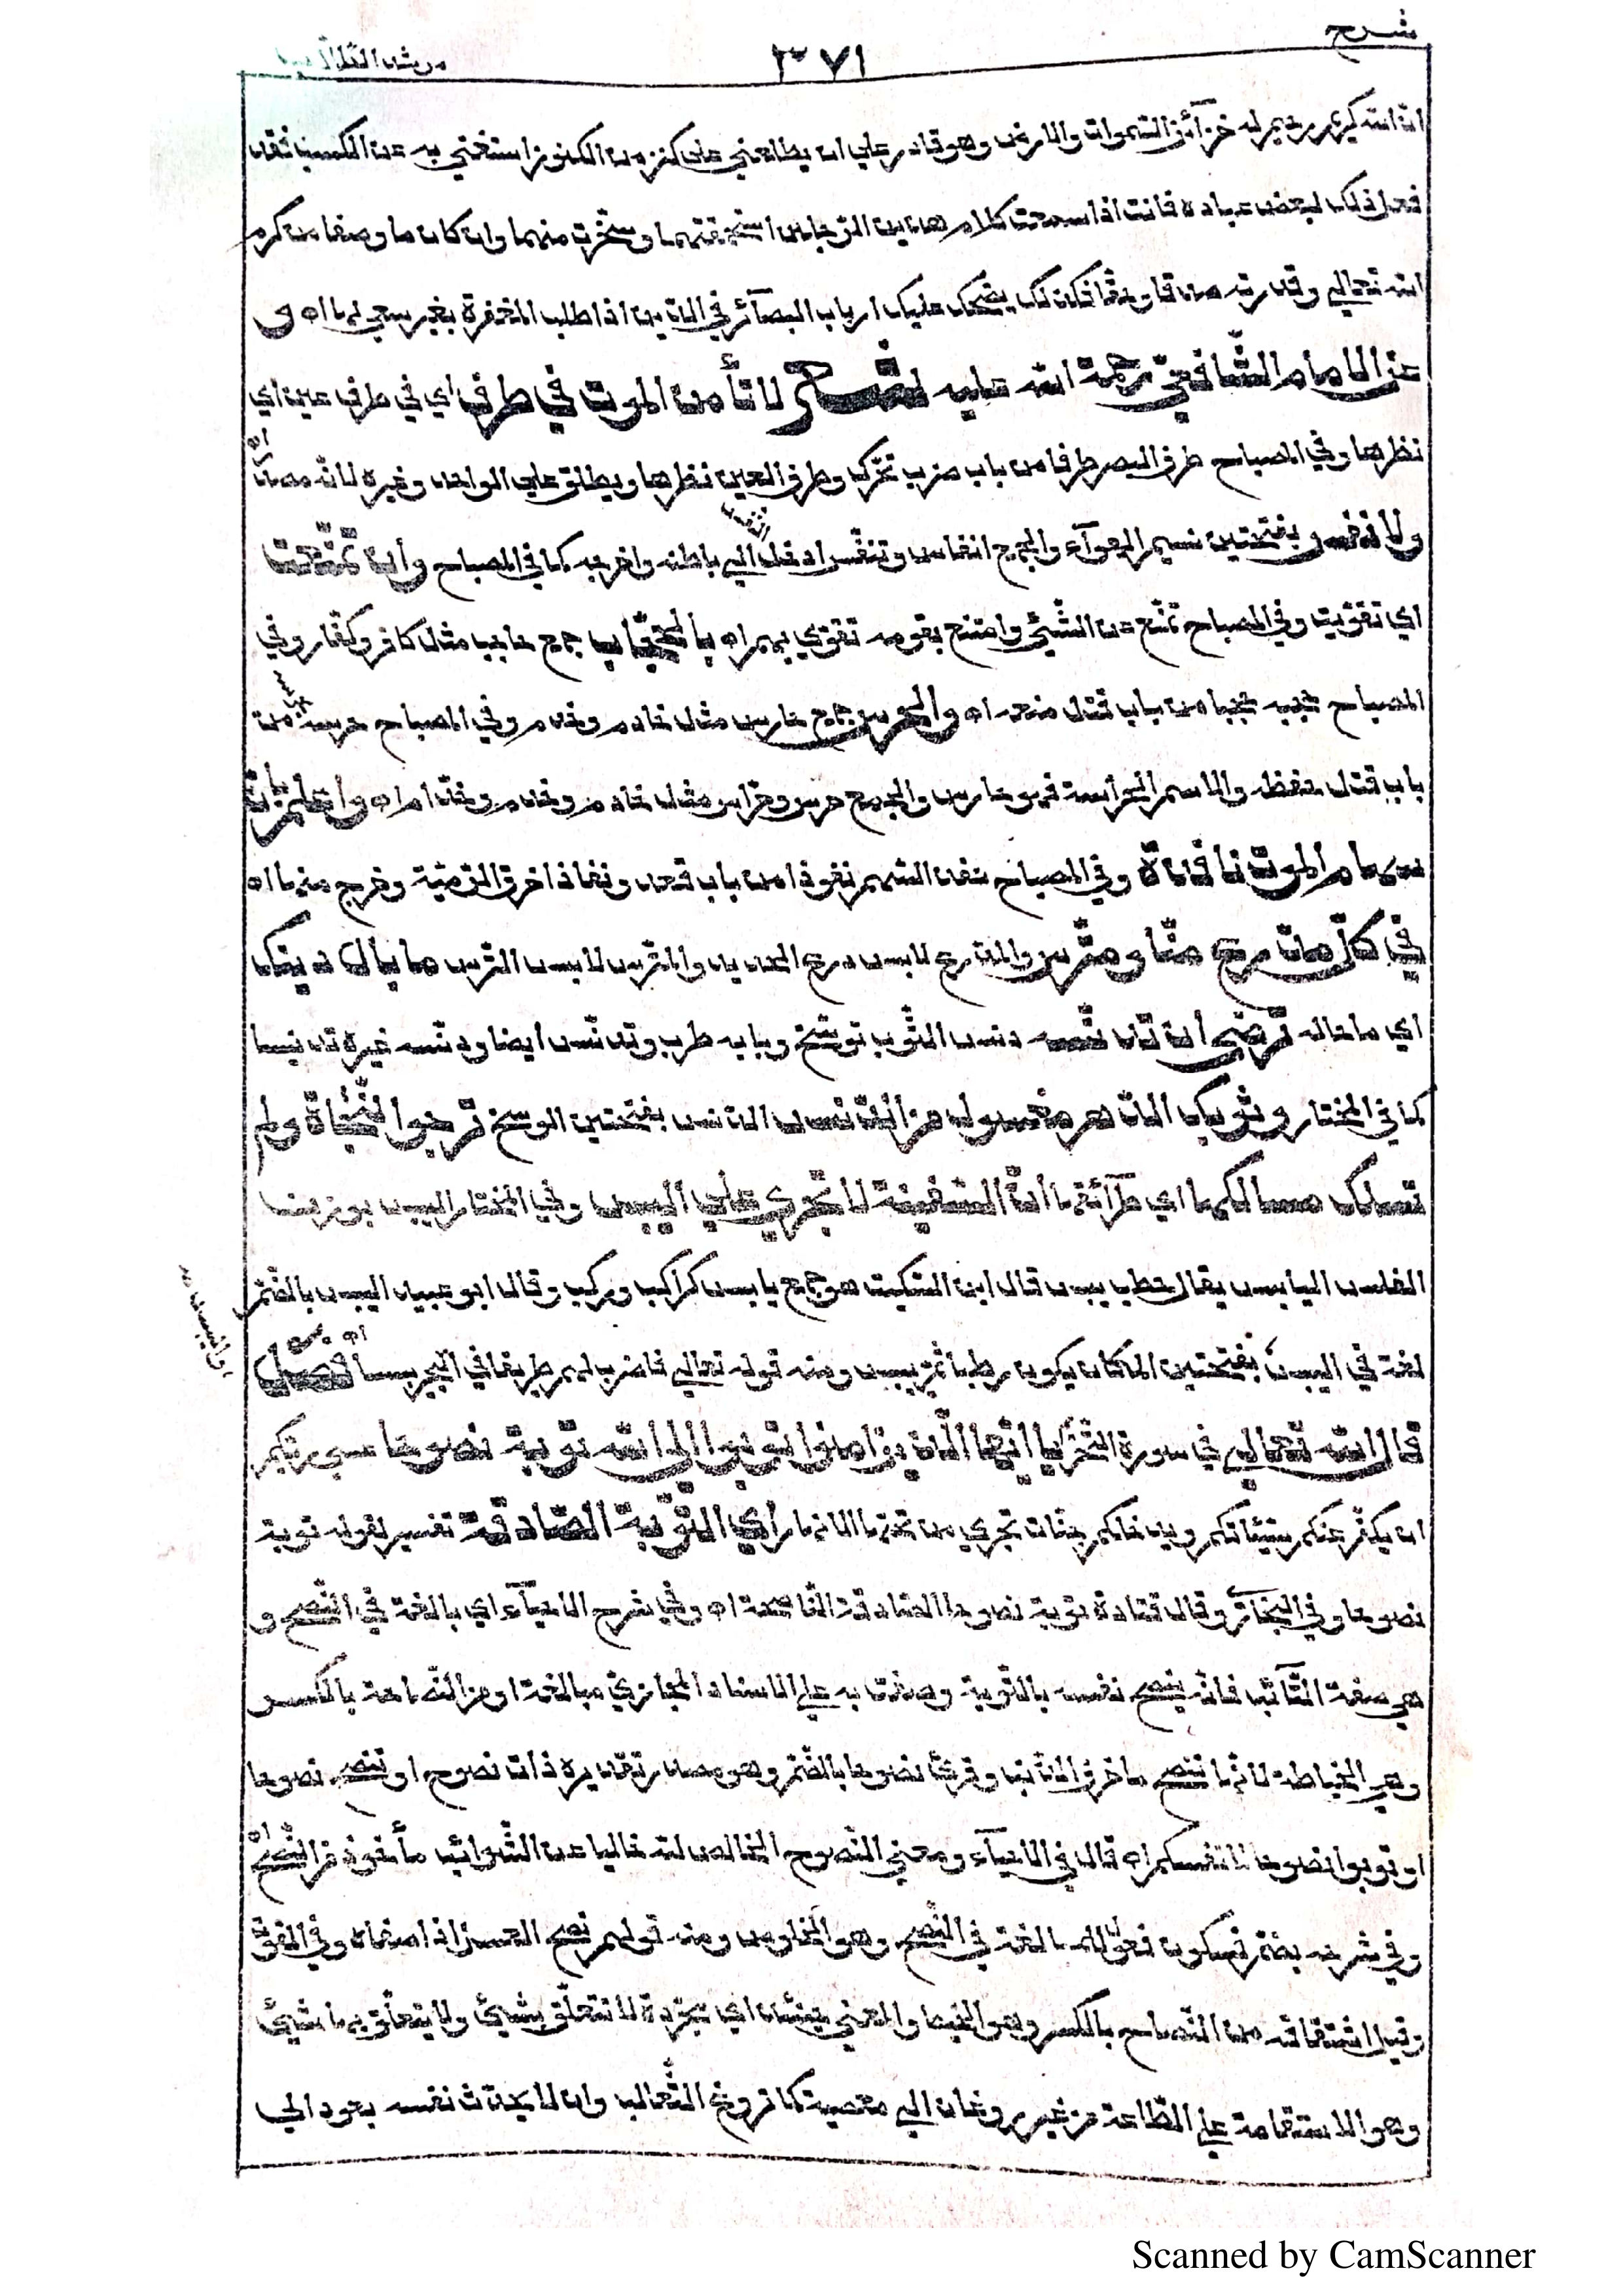 شرح
٣٧١
مرشد الطلاب
ان الله كريم رحيم له خزآئن السموات والارض وهو قادر على ان يطلعني على كنز من الكنوز استغني به عن الكسب فقد
فعل ذلك لبعض عباده فانت اذا سمعت كلام هذين الرجلين استحمقتهما وسخرت منهما وان كان ما وصفا من كرم
الله تعالى وقدرته صدقا وحقا فكذلك يضحك عليك ارباب البصآئر في الدين اذا طلبت المغفرة بغير سعي لها اه و
عن الامام الشافعي رحمة الله عليه لا تأمن الموت في طرف اي في طرف عين اي
نظرها وفي المصباح طرف البصر طرفا من باب ضرب تحرك وطرف العين نظرها ويطلق على الواحد وغيره لانه مصدر اه
ولا نفس وبفتحتين نسيم الهوآء والجمع انفاس وتنفس ادخل النفس الى باطنه واخرجه كما في المصباح وان تمنعت
اي تقويت وفي المصباح تمنع عن الشيئ وامتنع بقومه تقوى بهم اه بالحجاب جمع حاجب مثل كافر وكفار وفي
المصباح حجبه حجبا من باب قتل منعه اه والحرس جمع حارس مثل خادم وخدم وفي المصباح حرسه من
باب قتل حفظه والاسم الحراسة فهو حارس والجمع حرس وحراس مثل خادم وخدم وخدام اه واعلم بان
سهام الموت نافذة وفي المصباح نفذ السهم نفوذا من باب قعد ونفاذا خرق الرمية وخرج منها اه
في كل مدرع منا ومترس والمدرع لابس درع الحديد والمترس لابس الترس ما بال دينك
اي ما حاله ترضى ان تدنسه دنس الثوب توسخ وبابه طرب وتدنس ايضا ودنسه غيره تدنيسا
كما في المختار وثوبك الدهر مغسول من الدنس الدنس بفتحتين الوسخ ترجوا النجاة ولم
تسلك مسالكها اي طرآئقها ان السفينة لا تجري على اليبس وفي المختار اليبس بوزن
الفلس اليابس يقال حطب يبس قال ابن السكيت هو جمع يابس كراكب وركب وقال ابو عبيد اليبس بالضم
لغة في اليبس بفتحتين المكان يكون رطبا ثم ييبس ومنه قوله تعالى فاضرب لهم طريقا في البحر يبسا اه فصل
قال الله تعالى في سورة التحريم يا ايها الذين امنوا توبوا الى الله توبة نصوحا عسى ربكم
ان يكفر عنكم سيئاتكم ويدخلكم جنات تجري من تحتها الانهار اي التوبة الصادقة تفسير لقوله توبة
نصوحا وفي البخاري وقال قتادة توبة نصوحا الصادقة الناصحة اه وفي شرح الاحيآء اي بالغة في النصح و
هي صفة التآئب فانه ينصح نفسه بالتوبة وصفت به على الاسناد المجازي مبالغة او من النصاحة بالكسر
وهي الخياطة لانها تنصح ما خرق الذنب وقرئ نصوحا بالضم وهو مصدر تقديره ذات نصوح او تنصح نصوحا
او توبوا نصوحا لانفسكم اه قال في الاحيآء ومعنى النصوح الخالص لله خاليا عن الشوائب مأخوذ من النصح اه
وفي شرحه بضم فسكون فعول للمبالغة في النصح وهو الخلوص ومنه قولهم نصح العسل اذا صفاه وفي القوت
وقيل اشتقاقه من النصاح بالكسر وهو الخيط والمعنى حينئذ اي مجردة لا تتعلق بشيئ ولا يتعلق بها شيئ
وهو الاستقامة على الطاعة من غير روغان الى معصية كما تروغ الثعالب وان لا يحدث نفسه بعود الى
Scanned by CamScanner